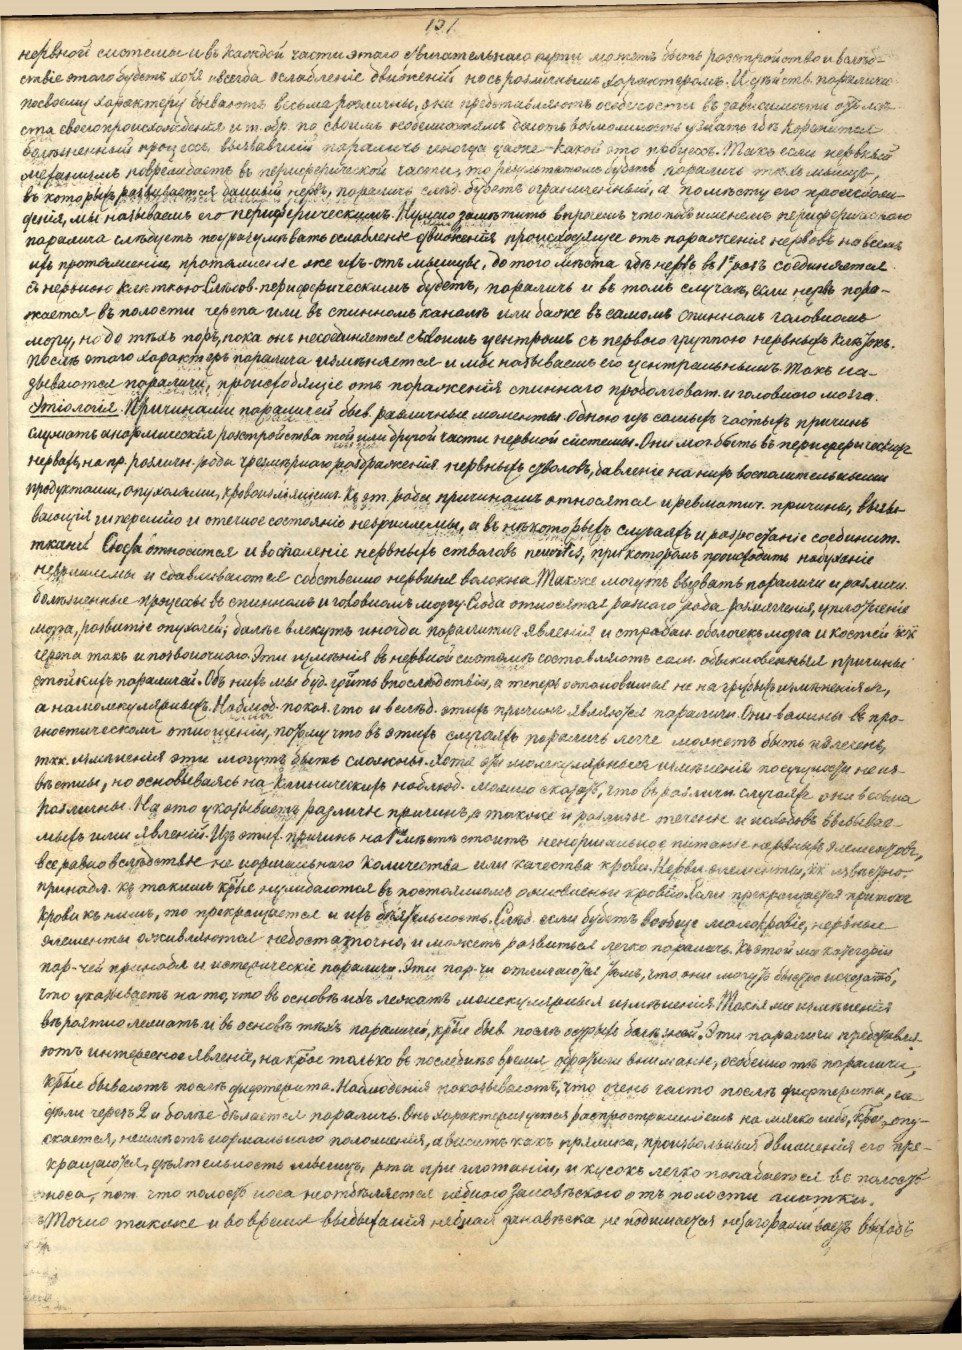 131.
нервной системы и въ каждой части этого двигательнаго пути можетъ быть разстройство и вслѣд-
ствіе этого будетъ хотя всегда ослабленіе движеній но съ различнымъ характеромъ. И дѣйств. параличи
по своему характеру бываютъ весьма различны, они представляютъ особенности въ зависимости отъ мѣ-
ста своего происхожденія и т. обр. по своимъ особенностямъ даютъ возможность узнать гдѣ коренится
болѣзненный процессъ, вызвавшій параличъ иногда даже какой это процессъ. Такъ если нервный
механизмъ поврежденъ въ периферической части, то результатомъ будетъ параличъ тѣхъ мышцъ,
въ которыхъ развѣтвляется данный нервъ, параличъ слѣд. будетъ ограниченный, а по мѣсту его происхож-
денія, мы называемъ его периферическимъ. Нужно замѣтить впрочемъ что подъ именемъ периферическаго
паралича слѣдуетъ подразумѣвать ослабленіе движенія происходящее отъ пораженія нервовъ на всемъ
ихъ протяженіи, протяженіе же ихъ - отъ мышцы, до того мѣста гдѣ нервъ въ 1й разъ соединяется
съ нервною клѣткою. Слѣдов. периферическимъ будетъ, параличъ и въ томъ случаѣ, если нервъ пора-
жается въ полости черепа или въ спинномъ каналѣ или даже въ самомъ спинномъ головномъ
мозгу, но до тѣхъ поръ, пока онъ не соединяется съ своимъ центромъ съ первою группою нервныхъ клѣтокъ.
Послѣ этого характеръ паралича измѣняется и мы называемъ его центральнымъ. Такъ на-
зываются параличи, происходящіе отъ пораженія спиннаго продолговат. и головного мозга.
Этіологія. Причинами параличей быв. различные моменты. Одною изъ самыхъ частыхъ причинъ
служатъ анатомическія разстройства той или другой части нервной системы. Они мог. быть въ периферическихъ
нервахъ, на пр. различн. рода чрезмѣрнаго раздраженія нервныхъ стволовъ, давленіе на нихъ воспалительными
продуктами, опухолями, кровоизліяніемъ. Къ эт. рода причинамъ относятся и ревматич. причины, вызы-
вающія гиперемію и отечное состояніе невриллемы, а въ нѣкоторыхъ случаяхъ и разростаніе соединит.
ткани. Сюда относится и воспаленіе нервныхъ стволовъ neuritis, при которомъ происходитъ набуханіе
невриллемы и сдавливаются собственно нервныя волокна. Также могутъ вызвать параличи и различн.
болѣзненные процессы въ спинномъ и головномъ мозгу. Сюда относятся разнаго рода размягченія, уплотненіе
мозга, развитіе опухолей; далѣе влекутъ иногда паралитич. явленія и страдан. оболочекъ мозга и костей какъ
черепа такъ и позвоночнаго. Эти измѣнія въ нервной системѣ составляютъ сам. обыкновенныя причины
стойкихъ параличей. Объ нихъ мы буд. говорить впослѣдствіи, а теперь остановимся не на грубыхъ измѣненіяхъ,
а на молекулярныхъ. Наблюд. показ. что и вслѣд. этихъ причинъ являются параличи. Они важны въ про-
гностическомъ отношеніи, потому что въ этихъ случаяхъ параличъ легче можетъ быть излеченъ,
ткк. измѣненія эти могутъ быть сложны. Хотя эти молекулярныя измѣненія по существу не из-
вѣстны, но основываясь на клиническихъ наблюд. можно сказать, что въ различн. случаяхъ они весьма
различны. На это указываетъ различіе причинъ, а также и различіе теченія и исходовъ вызывае-
мыхъ ими явленій. Изъ этих. причинъ на 1мъ мѣстѣ стоитъ ненормальное питаніе нервныхъ элементовъ,
все равно вслѣдствіе не нормальнаго количества или качества крови. Нервн. элементы, какъ извѣстно,
принадл. къ такимъ кѣые нуждаются въ постоянномъ омываніи кровью. Если прекращается притокъ
крови къ нимъ, то прекращается и ихъ дѣятельность. Слѣд. если будетъ вообще малокровіе, нервные
элементы оживляются недостаточно, и можетъ развиться легко параличъ. Къ этой же категоріи
пар-чей принадл. и истерическіе параличи. Эти пар-чи отличаются тѣмъ, что они могутъ быстро исчезать,
что указываетъ на то, что въ основѣ ихъ лежатъ молекулярныя измѣненія. Такія же измѣненія
вѣроятно лежатъ и въ основѣ тѣхъ параличей, кѣые быв. послѣ острыхъ болѣзней. Эти параличи представля-
ютъ интересное явленіе, на кѣое только въ послѣднее время обратили вниманіе, особенно тѣ параличи,
кѣые бываютъ послѣ дифтерита. Наблюденія показываютъ, что очень часто послѣ дифтерита, не-
дѣли черезъ 2 и болѣе дѣлается параличъ. Онъ характеризуется распространеніемъ на мягкое небо, кѣое, опу-
скается, не имѣетъ нормальнаго положенія, а виситъ какъ тряпка, произвольныя движенія его пре-
кращаются, дѣятельность мышцъ, рта при глотаніи, и кусокъ легко попадается въ полость
носа, пот. что полость носа не отдѣляется небною занавѣскою отъ полости глотки.
Точно также и во время выдыханія небная занавѣска не поднимается не загораживаетъ выходъ